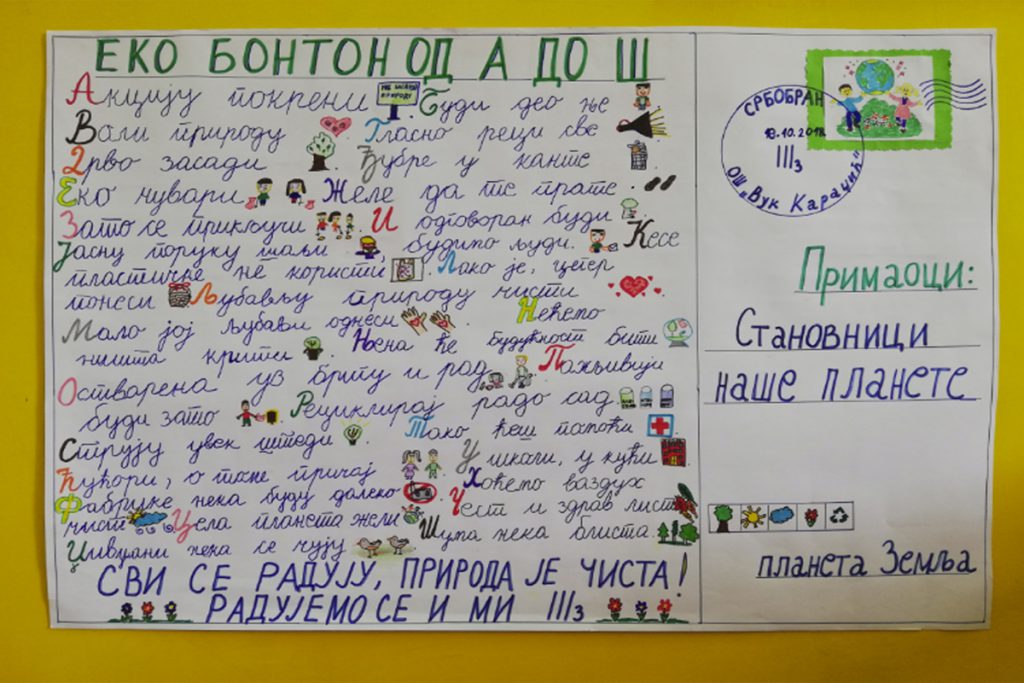 ЕКО БОНТОН ОД А ДО Ш
Акцију покрени НЕ ЗАГАЂУЈ ПРИРОДУ. Буди део ње
Воли природу. Гласно реци све
Дрво засади. Ђубре у канте.
Еко чувари. Желе да те прате.
Зато се прикључи. И одговоран буди
Јасну поруку шаљи, будимо људи. Кесе
пластичне не користи. Лако је, цегер
понеси. Љубављу природу чисти.
Мало јој љубави однеси. Нећемо
ништа крити. Њена ће будућност бити
Остварена уз бригу и рад. Пажљивији
буди зато. Рециклирај радо сад.
Струју увек штеди. Тако ћеш помоћи
Ћућори, о томе причај. У школи, у кући
Фабрике нека буду далеко. Хоћемо ваздух
чист. Цела планета жели. Чест и здрав лист
Џивџани нека се чују. Шума нека блиста.
СВИ СЕ РАДУЈУ, ПРИРОДА ЈЕ ЧИСТА!
РАДУЈЕМО СЕ И МИ III3
СРБОБРАН
18.10.2018.
III3
ОШ „Вук Караџић"
Примаоци:
Становници
наше планете
планета Земља